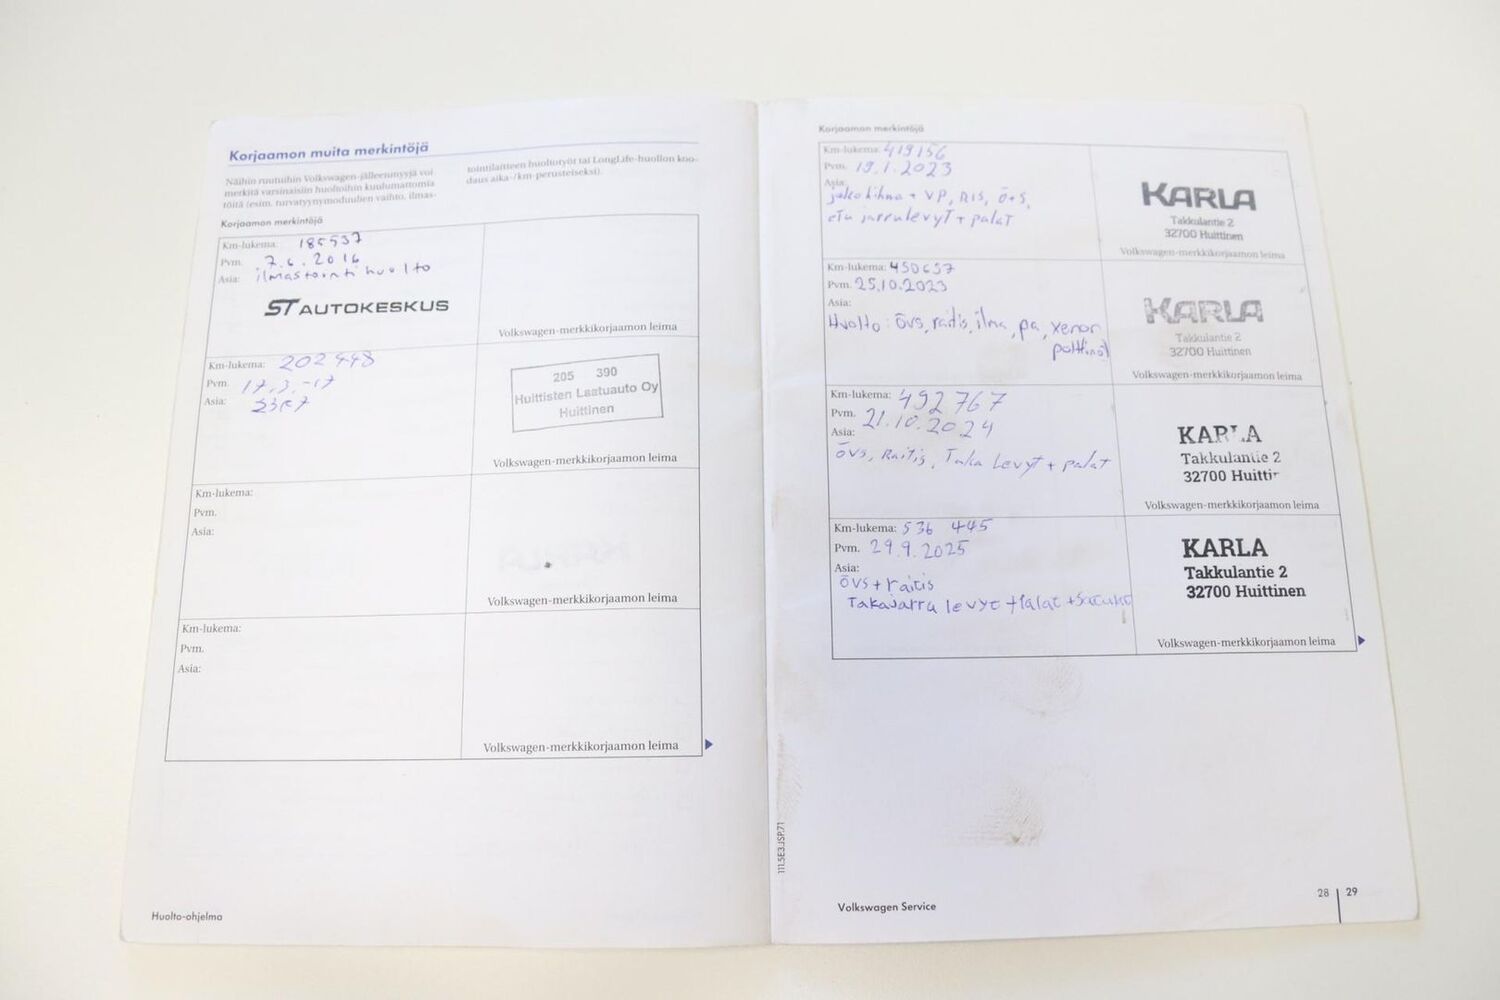 Korjaamon muita merkintöjä
Näihin ruutuihin Volkswagen-jälleenmyyjä voi
merkitä varsinaisiin huoltoihin kuulumattomia
töitä (esim. turvatyynymoduulien vaihto, ilmas-
tointilaitteen huoltotyöt tai LongLife-huollon koo-
daus aika-/km-perusteiseksi).
Korjaamon merkintöjä
Km-lukema: 185537
Pvm. 7.6.2016
Asia: ilmastointihuolto
ST AUTOKESKUS
Volkswagen-merkkikorjaamon leima
Km-lukema: 202 448
Pvm. 17.3.-17
Asia:
205 390
Huittisten Laatuauto Oy
Huittinen
Volkswagen-merkkikorjaamon leima
Km-lukema:
Pvm.
Asia:
Volkswagen-merkkikorjaamon leima
Km-lukema:
Pvm.
Asia:
Volkswagen-merkkikorjaamon leima
Huolto-ohjelma
Korjaamon merkintöjä
Km-lukema: 419156
Pvm. 19.1.2023
Asia:
jakohihna + VP, RIS, ÖS,
etu jarrulevyt + palat
KARLA
Takkulantie 2
32700 Huittinen
Volkswagen-merkkikorjaamon leima
Km-lukema: 450657
Pvm. 25.10.2023
Asia:
Huolto: övs, raitis, ilma, pa, xenon
polttimot
KARLA
Takkulantie 2
32700 Huittinen
Volkswagen-merkkikorjaamon leima
Km-lukema: 492767
Pvm. 21.10.2024
Asia:
övs, Raitis, Taka Levyt + palat
KARLA
Takkulantie 2
32700 Huittin
Volkswagen-merkkikorjaamon leima
Km-lukema: 536 445
Pvm. 29.9.2025
Asia:
övs + raitis
Takajarru levyt + Palat + Satulat
KARLA
Takkulantie 2
32700 Huittinen
Volkswagen-merkkikorjaamon leima
111.5E3.JSP.71
Volkswagen Service
28 | 29